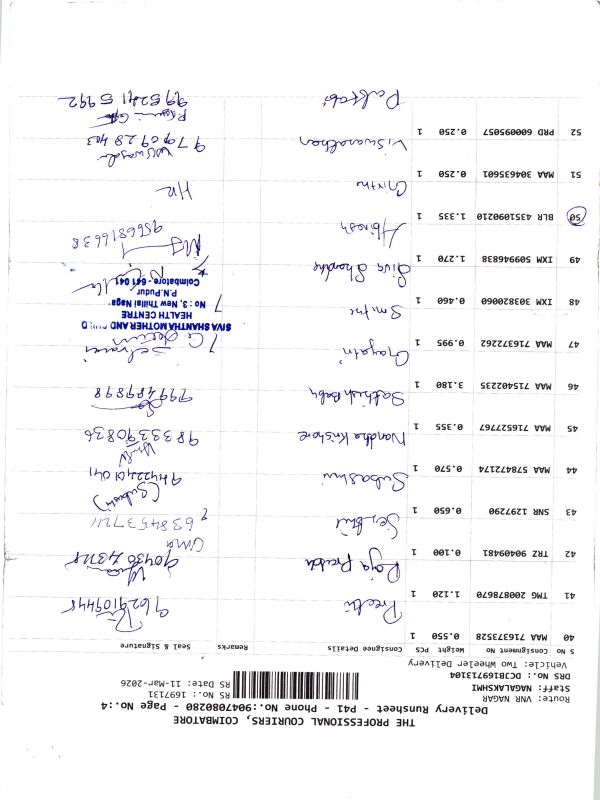 THE PROFESSIONAL COURIERS, COIMBATORE
Delivery Runsheet - P41 - Phone No.:9047080280 - Page No.:4
Route: VNR NAGAR
Staff: NAGALAKSHMI
DRS No.: DCJB169713104
Vehicle: Two Wheeler Delivery
RS No.: 1697131
RS Date: 11-Mar-2026
S No Consignment No Weight PCS Consignee Details Remarks Seal & Signature
40 MAA 716373528 0.550 1 Preethi 9629109448
41 TMG 200878670 1.120 1 Raja
42 TRZ 90409481 0.100 1 Uma 6384537211
43 SNR 1297290 0.650 1
44 MAA 578472174 0.570 1 Subashini 9442240041
45 MAA 716527767 0.355 1 Nandha Kishore 9833390836
46 MAA 715402235 3.180 1 Sathish Baby 799489898
47 MAA 716372262 0.995 1 Gayatri Selvarani
48 IXM 303823060 0.460 1 Smitha
SIVA SHANTHA MOTHER AND CHILD
HEALTH CENTRE
No : 3, New Thillai Nagar
P.N.Pudur
Coimbatore - 641 041
49 IXM 509946838 1.270 1 Siva Shantha
50 BLR 4351090210 1.335 1 Abinesh 9566816638
51 MAA 304635601 0.250 1
52 PRD 600095057 0.250 1 Viswanathan 9790928403
Pallavi 9952411592